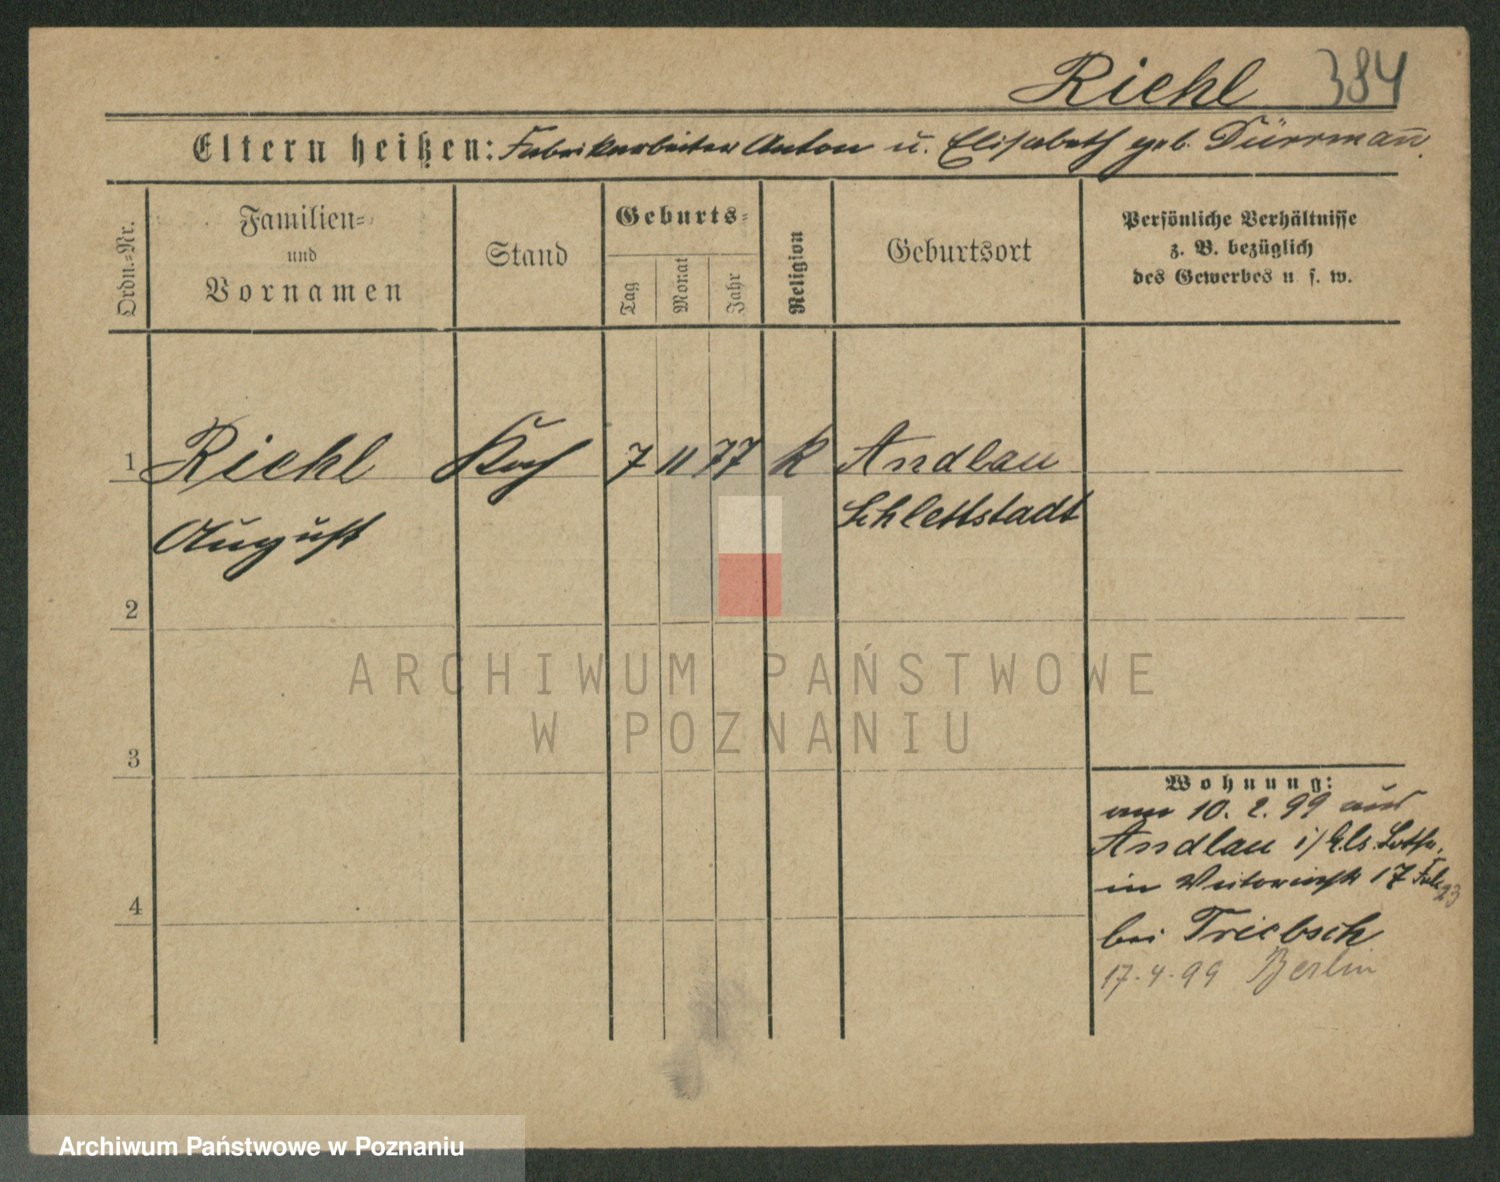 Riehl 384
Eltern heißen: Fabrikarbeiter Anton u. Elisabeth geb. Dürrman̄
Ordn.-Nr.
Familien-
und
Vornamen
Stand
Geburts-
Tag
Monat
Jahr
Religion
Geburtsort
Persönliche Verhältnisse
z. B. bezüglich
des Gewerbes u. s. w.
1 Riehl Koch 7 11 77 k Andlau
August Schlettstadt
2
ARCHIWUM PAŃSTWOWE
W POZNANIU
3
Wohnung:
am 10. 2. 99 aus
Andlau i/Els. Lothr.
in 17
4
bei Triebsch
17.4.99 Berlin
Archiwum Państwowe w Poznaniu